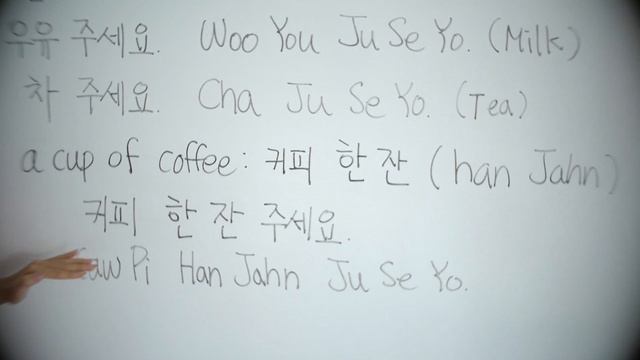 우유 주세요. Woo You Ju Se Yo. (Milk)
차 주세요. Cha Ju Se Yo. (Tea)
a cup of coffee: 커피 한 잔 (han Jahn)
커피 한 잔 주세요.
Pi Han Jahn Ju Se Yo.